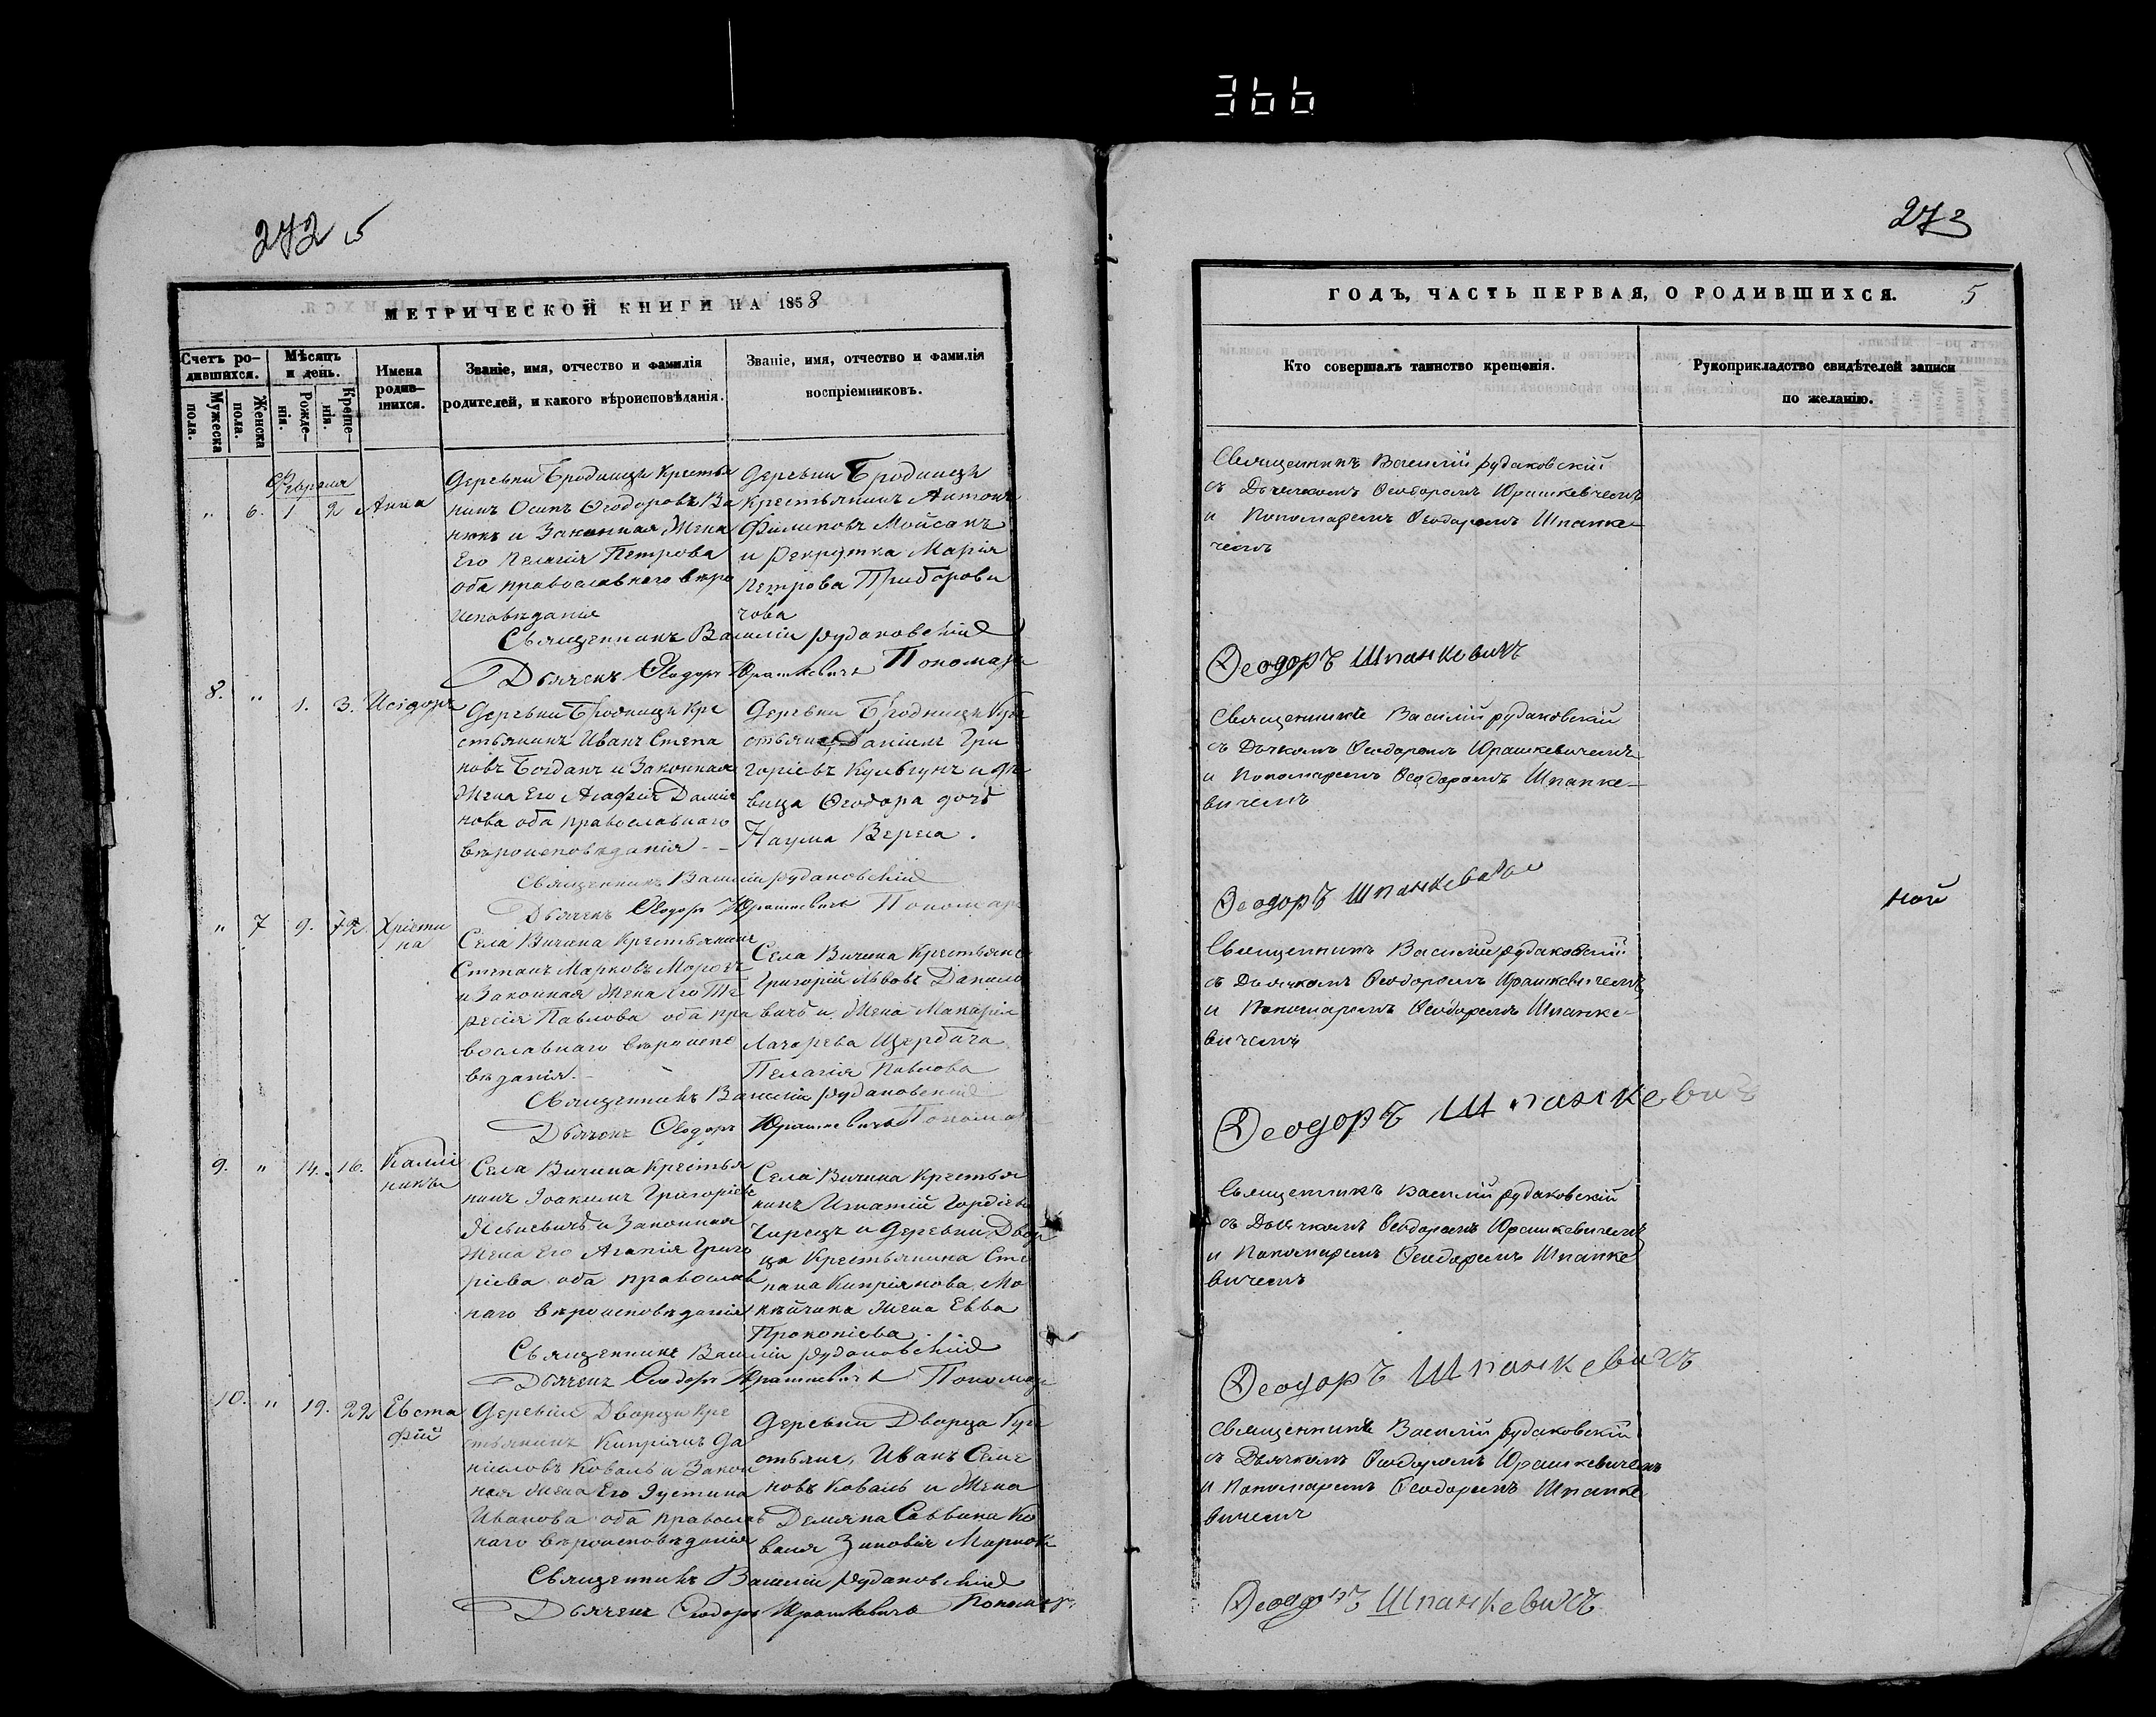 366
272 5
МЕТРИЧЕСКОЙ КНИГИ НА 1858
Счетъ ро-
дившихся.
Мужеска
пола.
Женска
пола.
Мѣсяцъ
и день.
Рожде-
нія.
Креще-
нія.
Имена
родив-
шихся.
Званіе, имя, отчество и фамилія
родителей, и какого вѣроисповѣданія.
Званіе, имя, отчество и фамилія
воспріемниковъ.
Февраля
" 6. 1 2 Анна
Деревни Бродницы Крестья
нинъ Осипъ Ѳеодоровъ Ва
нюкъ и Законная Жена
Его Пелагія Петрова
оба православнаго вѣро
исповѣданія
Деревни Бродницы
Крестьянинъ Антонъ
Филиповъ Мойсакъ
и рекрутка Марія
Петрова Приборови
чова
Священникъ Василій Рудаковскій
Дьячекъ Ѳеодоръ Юрашкевичъ Пономарь
8. " 1. 3. Исідоръ
Деревни Бродницы Кре
стьянинъ Иванъ Степа
новъ Богданъ и Законная
Жена Его Агафія Даміа
нова оба православнаго
вѣроисповѣданія - -
Деревни Бродницы Кре
стьяне Даніилъ Гри
горіевъ Кульгунъ и дѣ
вица Ѳеодора дочь
Наума Вереса.
Священникъ Василій Рудаковскій
Дьячекъ Ѳеодоръ Юрашкевичъ Пономарь
" 7 9. Хрісти
на
Села Вичина Крестьянинъ
Степанъ Марковъ Морозъ
и Законная Жена Его Те
ресія Павлова оба пра
вославнаго вѣроиспо
вѣданія. -
Села Вичина Крестьяне
Григорій Львовъ Данило
вичъ и Жена Макарія
Лазарева Щербача
Пелагія Павлова
Священникъ Василій Рудаковскій
Дьячекъ Ѳеодоръ Юрашкевичъ Пономарь
9. " 14. 16. Каллі
никъ
Села Вичина Крестья
нинъ Іоакимъ Григоріевъ
и Законная
Жена Его Агапія Григо
ріева оба православ
наго вѣроисповѣданія
Села Вичина Крестья
нинъ Игнатій Гордіевъ
и Деревни Двор
ца Крестьянина Сте
пана Кипріянова Мо
жена Евва
Прокопіева.
Священникъ Василій Рудаковскій
Дьячекъ Ѳеодоръ Юрашкевичъ Пономарь
10. " 19. 22 Евста
фій
Деревни Дворца Кре
стьянинъ Кипріянъ Да
ніиловъ Коваль и Закон
ная Жена Его Іустина
Иванова оба православ
наго вѣроисповѣданія
Деревни Дворца Кре
стьяне, Иванъ Семе
новъ Коваль и Жена
Деміяна Саввина Ко
валя Зиновія Маркова
Священникъ Василій Рудаковскій
Дьячекъ Ѳеодоръ Юрашкевичъ Пономарь
273
ГОДЪ, ЧАСТЬ ПЕРВАЯ, О РОДИВШИХСЯ. 5
Кто совершалъ таинство крещенія.
Рукоприкладство свидѣтелей записи
по желанію.
Священникъ Василій Рудаковскій
съ Дьячкомъ Ѳеодоромъ Юрашкевичемъ
и Пономаремъ Ѳеодоромъ Шпанке-
чемъ
Ѳеодоръ Шпанкевичъ
Священникъ Василій Рудаковскій
съ Дьчкомъ Ѳеодоромъ Юрашкевичемъ
и Пономаремъ Ѳеодоромъ Шпанке-
вичемъ
Ѳеодоръ Шпанкевичъ
ной
Священникъ Василій Рудаковскій
съ Дьячкомъ Ѳеодоромъ Юрашкевичемъ
и Пономаремъ Ѳеодоромъ Шпанке-
вичемъ
Ѳеодоръ Шпанкевичъ
Священникъ Василій Рудаковскій
съ Дьячкомъ Ѳеодоромъ Юрашкевичемъ
и Пономаремъ Ѳеодоромъ Шпанке
вичемъ
Ѳеодоръ Шпанкевичъ
Священникъ Василій Рудаковскій
съ Дьячкомъ Ѳеодоромъ Юрашкевичемъ
и Пономаремъ Ѳеодоромъ Шпанке
вичемъ
Ѳеодоръ Шпанкевичъ